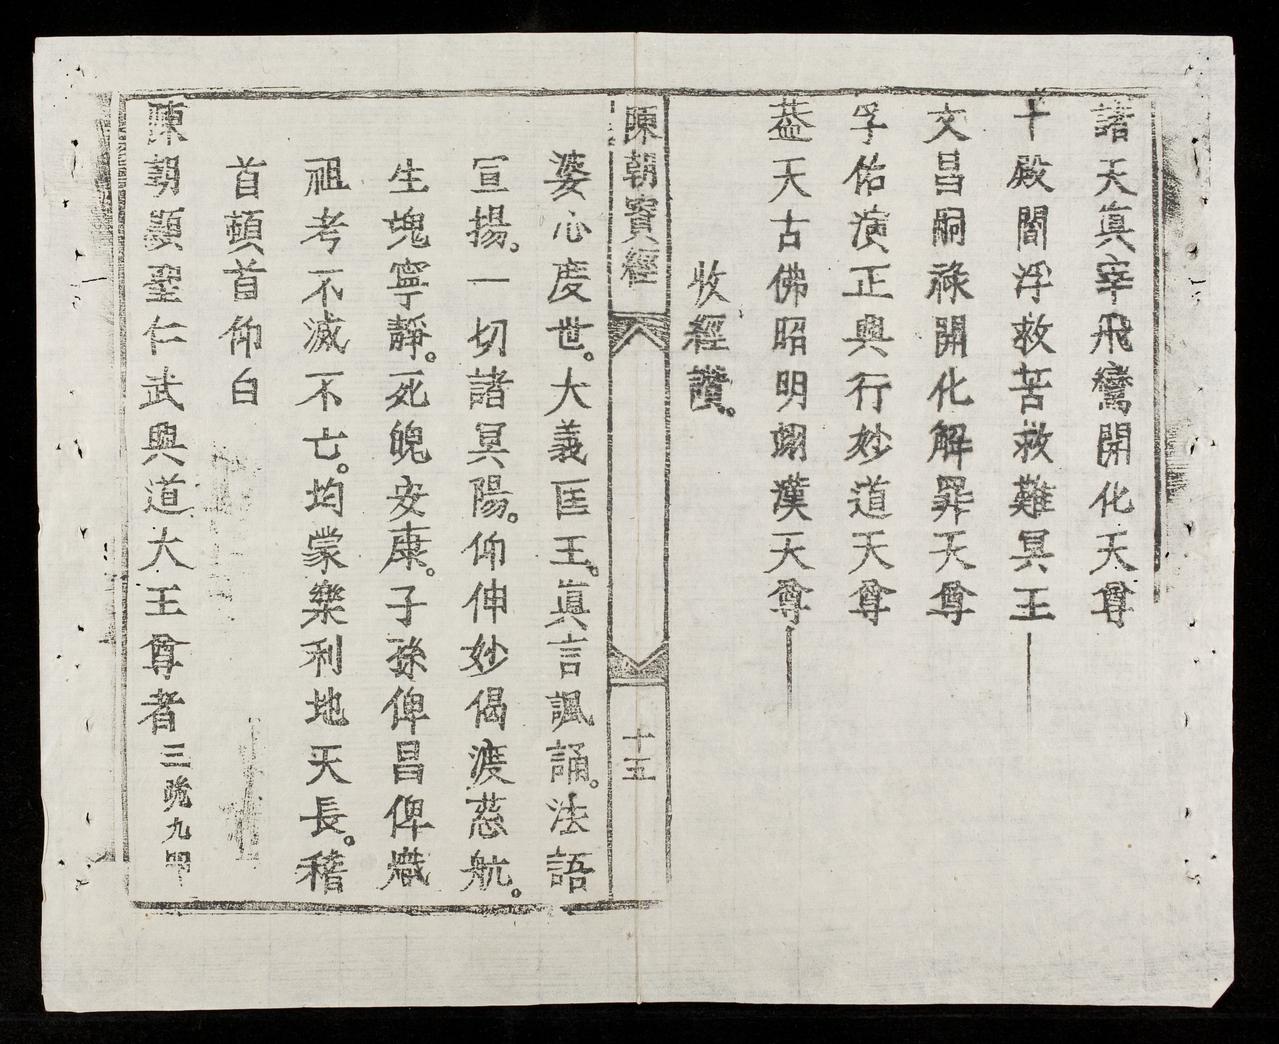 諸天眞宰飛鸞開化天尊
十殿閻浮救苦救難冥王
文昌嗣祿開化解罪天尊
孚佑演正興行妙道天尊
蓋天古佛昭明翊漢天尊
收經讚。
陳朝寶經
十五
婆心度世。大義匡王。眞言諷誦。法語
宣揚。一切諸冥陽。仰伸妙偈渡慈航。
生魂寧靜。死魄安康。子孫俾昌俾熾
祖考不滅不亡。均蒙樂利地天長。稽
首頓首仰白
陳朝顯聖仁武興道大王尊者三噡九叩